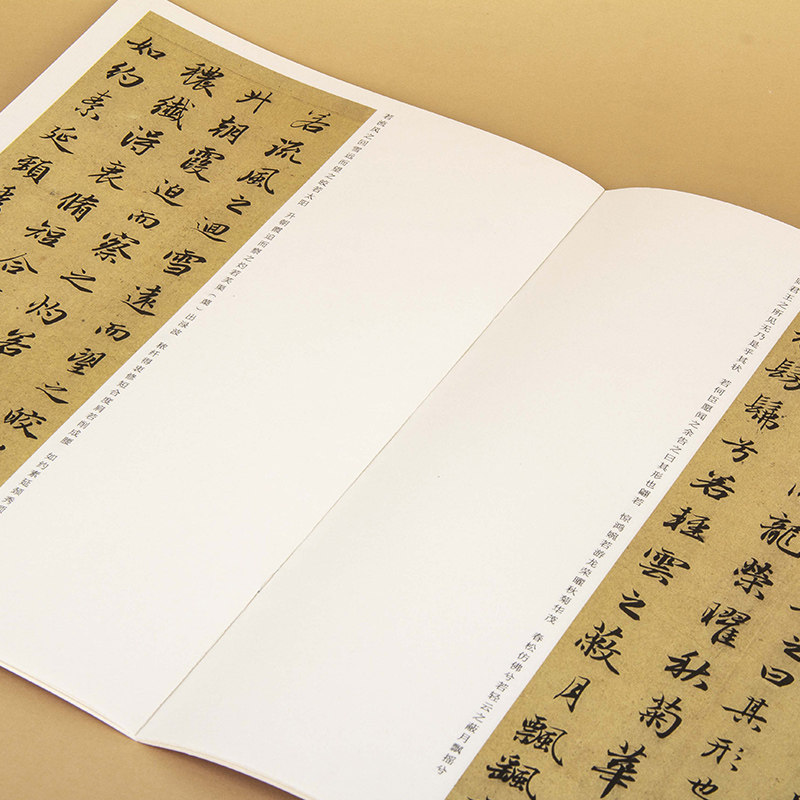 之曰其形也
龍榮曜秋菊華
髣髴兮若輕雲之蔽月飄飖
君王之所见无乃是乎其状 若何臣愿闻之余告之曰其形也翩若 惊鸿婉若游龙荣曜秋菊华茂 春松仿佛兮若轻云之蔽月飘摇兮
若流風之迴雪遠而望之皎
升朝霞迫而察之灼若
穠纖得衷脩短合
如約素延頸秀
若流风之回雪远而望之皎若太阳 升朝霞迫而察之灼若芙蕖 出渌波 秾纤得衷修短合度肩若削成腰 如约素延颈秀项